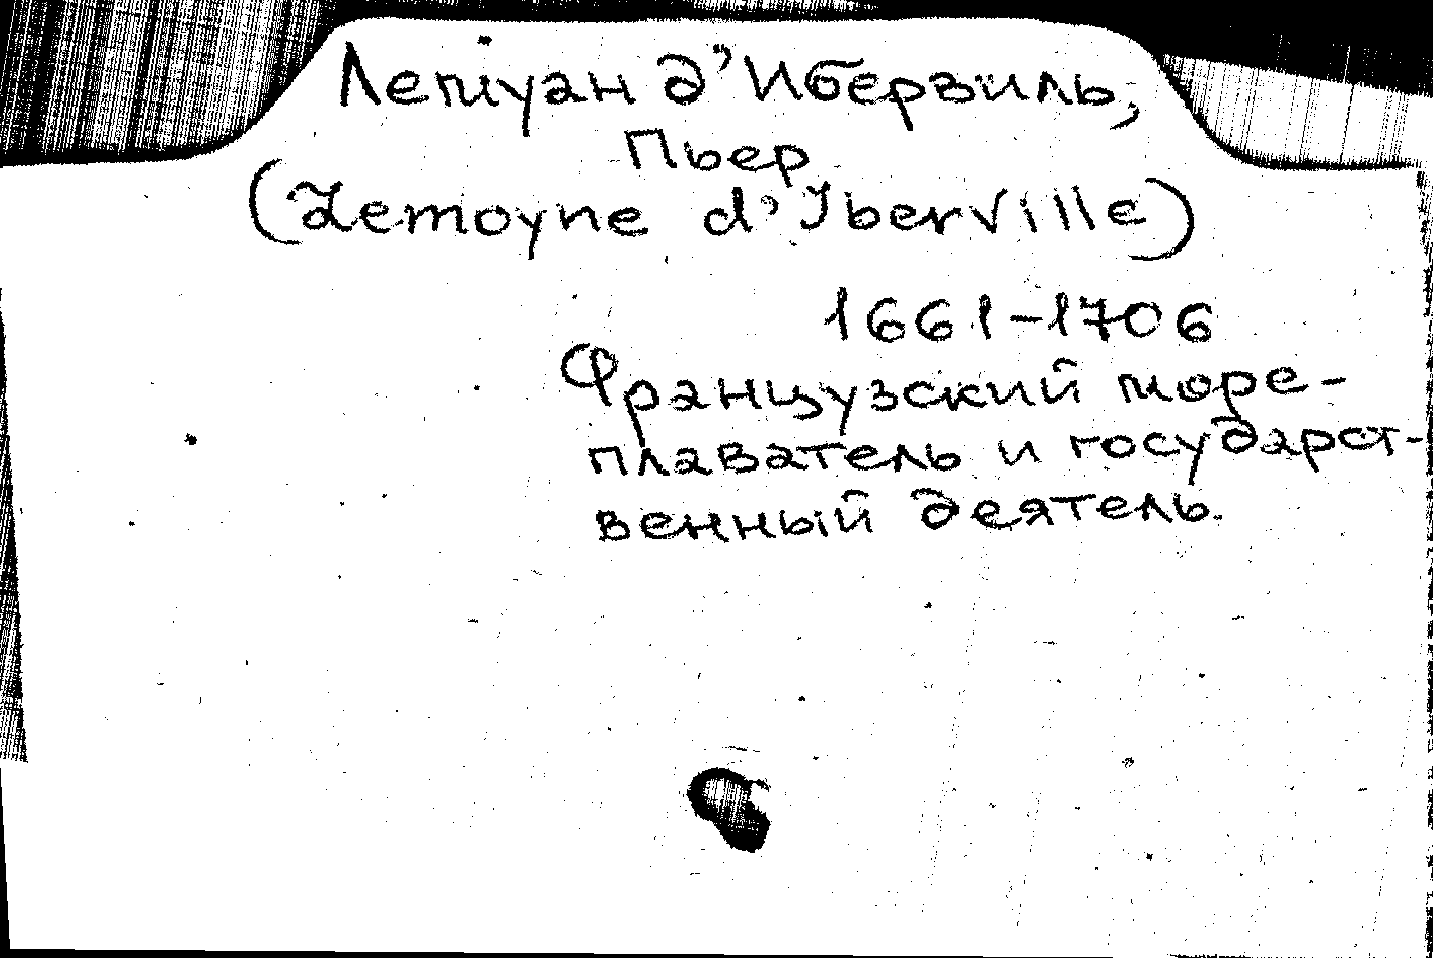 Лемуан д'Ибервиль,
Пьер
(Lemoyne d'Iberville)
1661-1706
Французский море-
плаватель и государст-
венный деятель.